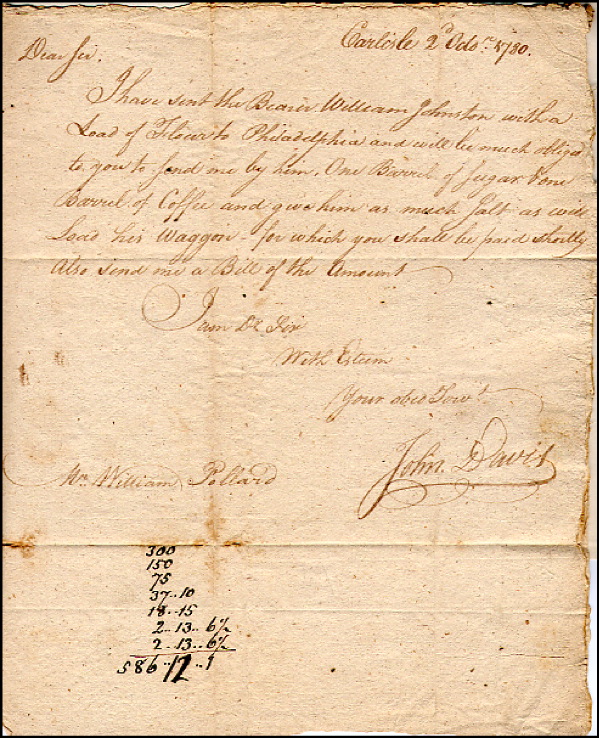 Carlisle 2d Octor. 1780.
Dear Sir.
I have sent the Bearer William Johnston with a
Load of Flour to Philadelphia and will be much obliged
to you to send me by him. One Barrel of Sugar & one
Barrel of Coffee and give him as much Salt as will
Load his Waggon - for which you shall be paid shortly
Also send me a Bill of the Amount
I am Dr Sir
With Esteem
Your obed Servt.
John Davis
Mr. William Pollard
300
150
75
37..10
18..15
2..13..6½
2..13..6½
586..12..1